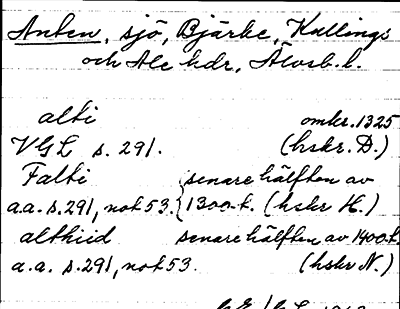 Anten, sjö, Bjärke, Kullings
och Ale hdr, Älvsb. l.
alti omkr. 1325
VGL s. 291. (hskr. D.)
Falti senare hälften av
a.a. s. 291, not 53. 1300-t. (hskr H.)
althiid senare hälften av 1400-t.
a.a. s. 291, not 53. (hskr N.)